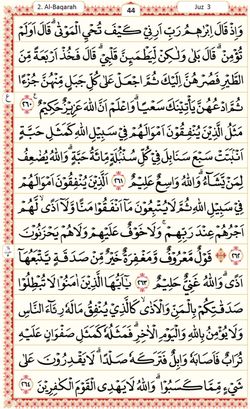 2. Al-Baqarah 44 Juz 3
وَاِذْ قَالَ اِبْرٰهٖمُ رَبِّ اَرِنِيْ كَيْفَ تُحْيِ الْمَوْتٰى ۗ قَالَ اَوَلَمْ
تُؤْمِنْ ۗ قَالَ بَلٰى وَلٰكِنْ لِّيَطْمَىِٕنَّ قَلْبِيْ ۗ قَالَ فَخُذْ اَرْبَعَةً مِّنَ
الطَّيْرِ فَصُرْهُنَّ اِلَيْكَ ثُمَّ اجْعَلْ عَلٰى كُلِّ جَبَلٍ مِّنْهُنَّ جُزْءًا
ثُمَّ ادْعُهُنَّ يَأْتِيْنَكَ سَعْيًا ۗ وَاعْلَمْ اَنَّ اللّٰهَ عَزِيْزٌ حَكِيْمٌ ٢٦٠
مَثَلُ الَّذِيْنَ يُنْفِقُوْنَ اَمْوَالَهُمْ فِيْ سَبِيْلِ اللّٰهِ كَمَثَلِ حَبَّةٍ
اَنْۢبَتَتْ سَبْعَ سَنَابِلَ فِيْ كُلِّ سُنْۢبُلَةٍ مِّائَةُ حَبَّةٍ ۗ وَاللّٰهُ يُضٰعِفُ
لِمَنْ يَّشَاۤءُ ۗ وَاللّٰهُ وَاسِعٌ عَلِيْمٌ ٢٦١ اَلَّذِيْنَ يُنْفِقُوْنَ اَمْوَالَهُمْ
فِيْ سَبِيْلِ اللّٰهِ ثُمَّ لَا يُتْبِعُوْنَ مَآ اَنْفَقُوْا مَنًّا وَّلَآ اَذًى ۙ لَّهُمْ
اَجْرُهُمْ عِنْدَ رَبِّهِمْ ۚ وَلَا خَوْفٌ عَلَيْهِمْ وَلَا هُمْ يَحْزَنُوْنَ
٢٦٢ قَوْلٌ مَّعْرُوْفٌ وَّمَغْفِرَةٌ خَيْرٌ مِّنْ صَدَقَةٍ يَّتْبَعُهَآ
اَذًى ۗ وَاللّٰهُ غَنِيٌّ حَلِيْمٌ ٢٦٣ يٰٓاَيُّهَا الَّذِيْنَ اٰمَنُوْا لَا تُبْطِلُوْا
صَدَقٰتِكُمْ بِالْمَنِّ وَالْاَذٰى ۙ كَالَّذِيْ يُنْفِقُ مَالَهٗ رِئَاۤءَ النَّاسِ
وَلَا يُؤْمِنُ بِاللّٰهِ وَالْيَوْمِ الْاٰخِرِ ۗ فَمَثَلُهٗ كَمَثَلِ صَفْوَانٍ عَلَيْهِ
تُرَابٌ فَاَصَابَهٗ وَابِلٌ فَتَرَكَهٗ صَلْدًا ۗ لَا يَقْدِرُوْنَ عَلٰى
شَيْءٍ مِّمَّا كَسَبُوْا ۗ وَاللّٰهُ لَا يَهْدِى الْقَوْمَ الْكٰفِرِيْنَ ٢٦٤